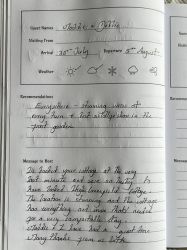 Guest Names Maddie + Debbie
Visiting From
Arrival 30th July Departure 5th August
Weather
Recommendations
Everywhere - stunning views at
every turn + hot
front garden.
Message to Host
We booked your cottage at the very
last minute and were so lucky to
have
The location is stunning and the cottage
has everything and more that's needed
for a very comfortable stay.
Maddie & I have had a great time
Many thanks from us both